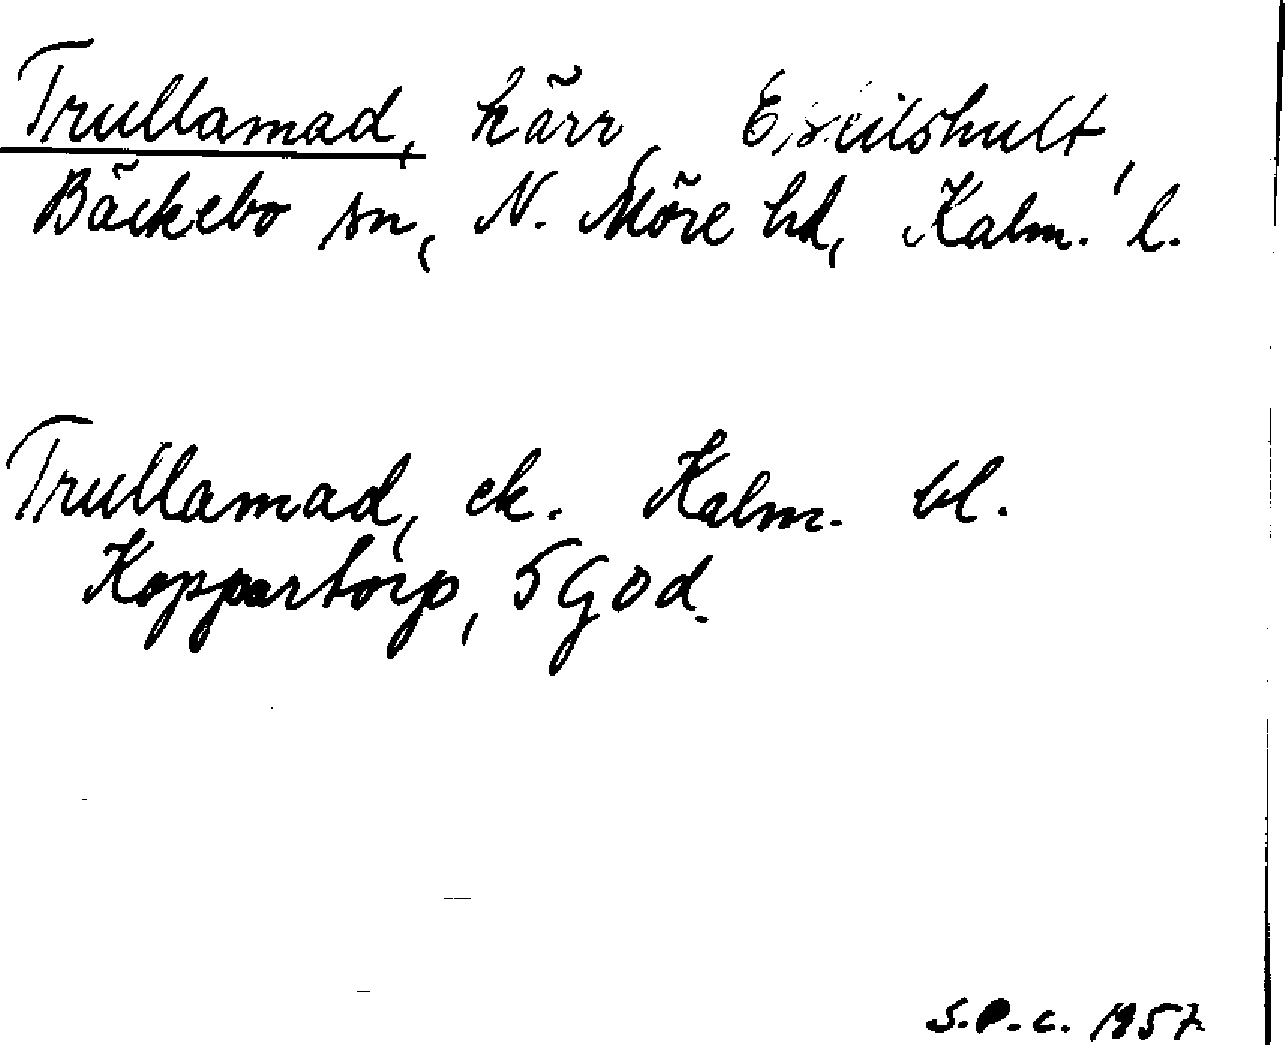 Trullamad, kärr, Eskilshult,
Bäckebo sn, N. Möre hd, Kalm. l.
Trullamad, ek. Kalm. bl.
Koppartorp, 5 G 0 d.
S.P.C. 1957